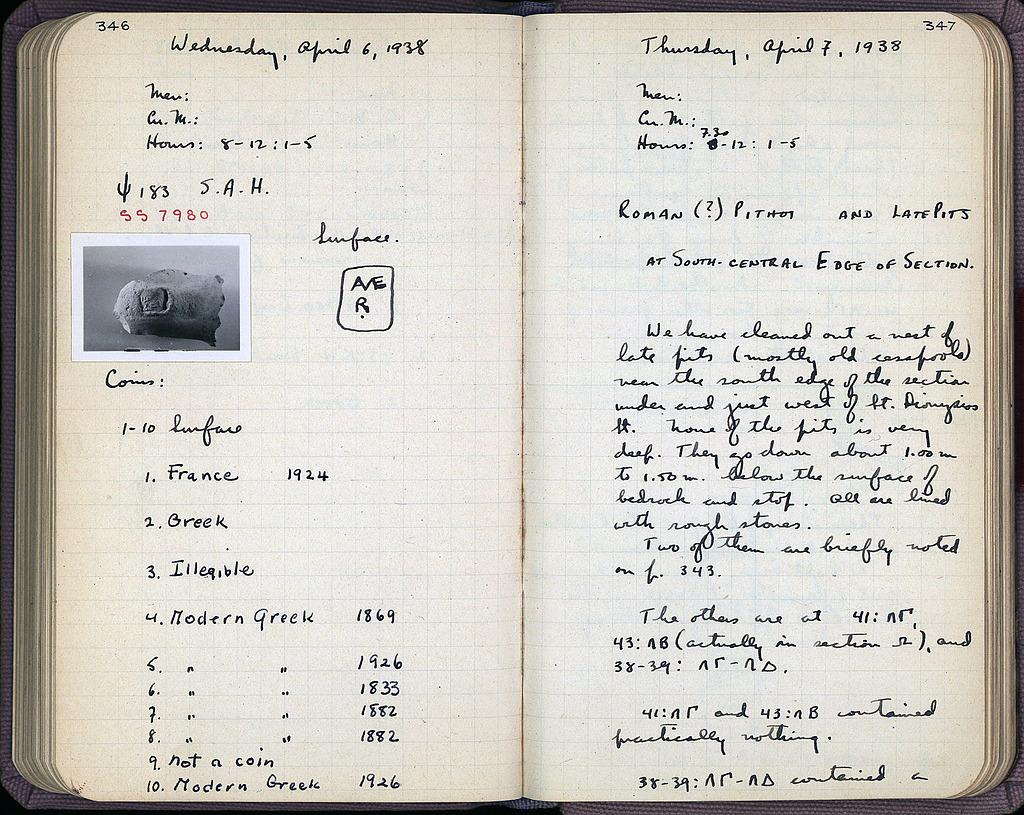 346
Wednesday, April 6, 1938
Men:
Cu. M.:
Hours: 8-12:1-5
ψ 183 S.A.H.
SS 7980
Surface.
AVE
R.
Coins:
1-10 Surface
1. France 1924
2. Greek
3. Illegible
4. Modern Greek 1869
5. " " 1926
6. " " 1833
7. " " 1882
8. " " 1882
9. not a coin
10. Modern Greek 1926
347
Thursday, April 7, 1938
Men:
Cu. M.:
7.30
Hours: 8-12: 1-5
ROMAN (?) PITHOI AND LATE PITS
AT SOUTH-CENTRAL EDGE OF SECTION.
We have cleaned out a nest of
late pits (mostly old cesspools)
near the south edge of the section
under and just west of St. Dionysios
St. None of the pits is very
deep. They go down about 1.00 m
to 1.50 m. below the surface of
bedrock and stop. All are lined
with rough stones.
Two of them are briefly noted
on p. 343.
The others are at 41:ΛΓ,
43:ΛB (actually in section Ω), and
38-39: ΛΓ-ΛΔ.
41:ΛΓ and 43:ΛB contained
practically nothing.
38-39: ΛΓ-ΛΔ contained a